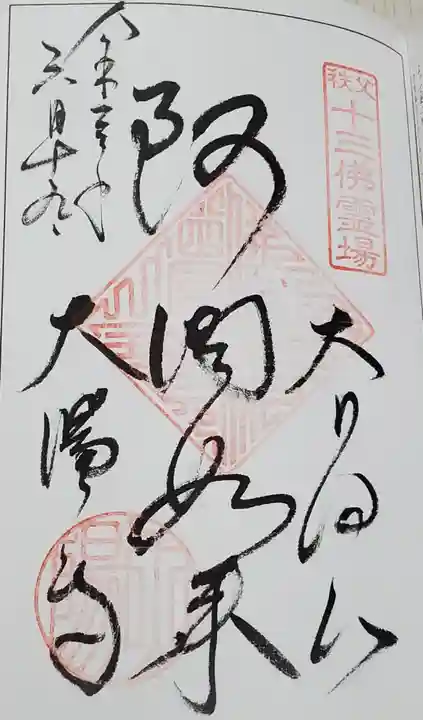 秩父
十三佛霊場
大日向山
阿閦如来
大陽寺
令和
三月十九